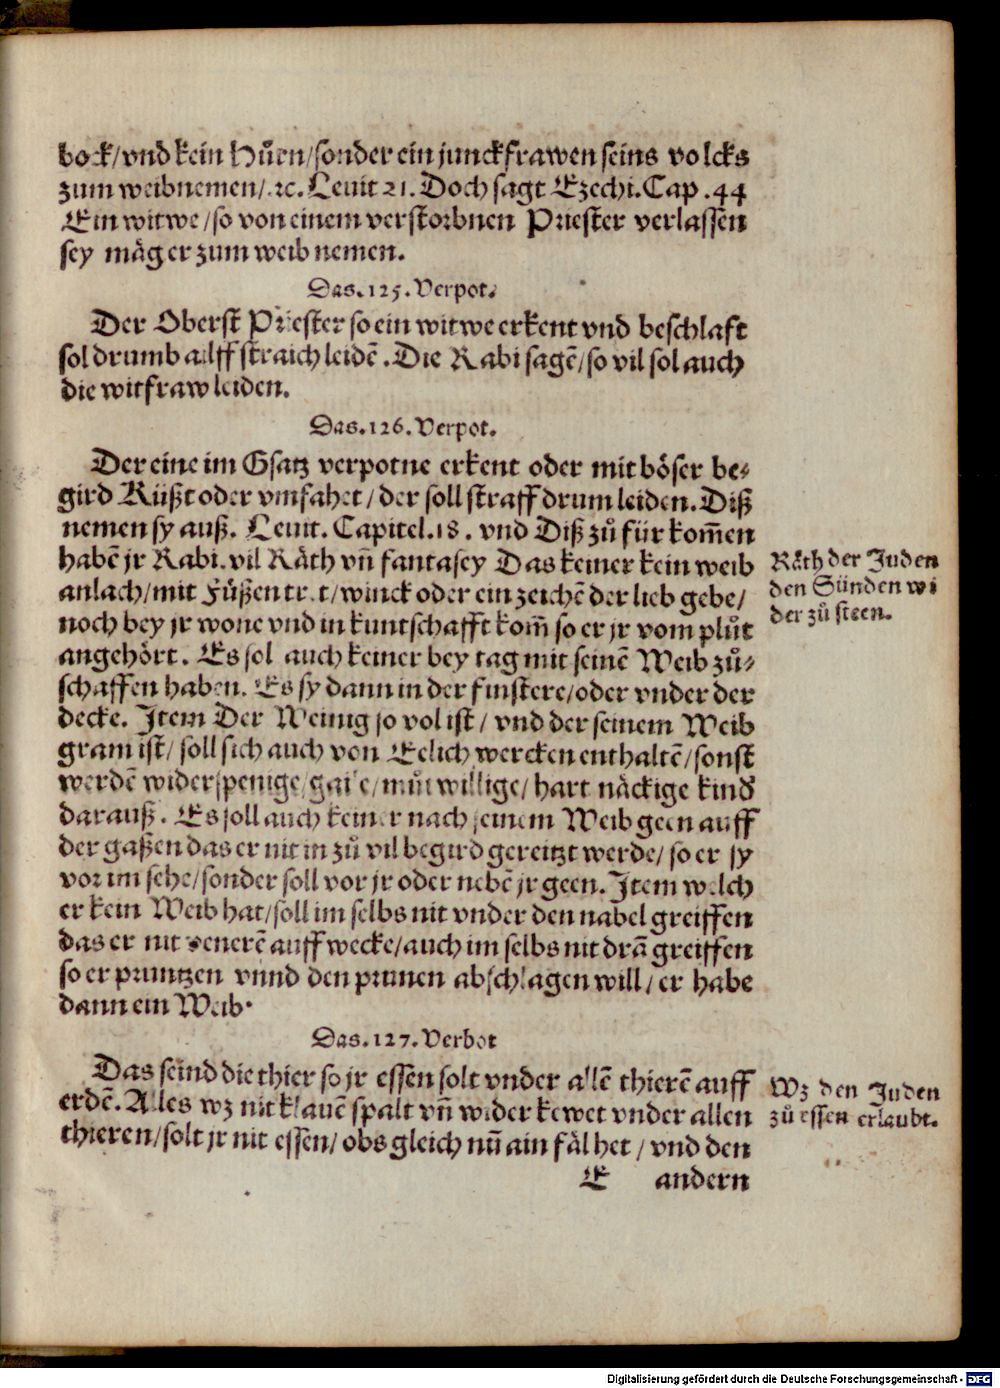 bock/vnd kein Hůren/sonder ein junckfrawen seins volcks
zum weib nemen/.ꝛc. Leuit 21. Doch sagt Ezechi. Cap .44
Ein witwe/so von einem verstorbnen Priester verlassen
sey mäg er zum weib nemen.
Das.125.Verpot.
Der Oberst Priester so ein witwe erkent vnd beschlaft
sol drumb ailff straich leidē. Die Rabi sagē/so vil sol auch
die witfraw leiden.
Das.126.Verpot.
Der eine im Gsatz verpotne erkent oder mit böser be⸗
gird Küßt oder vmfahet/der soll straff drum leiden. Diß
nemen sy auß. Leuit. Capitel.18. vnd Diß zů für kom̄en
habē jr Rabi. vil Räth vn̄ fantasey Das keiner kein weib
anlach/mit Füßen tret/winck oder ein zeichē der lieb gebe/
noch bey jr wone vnd in kuntschafft kom̄ so er jr vom plůt
angehört. Es sol auch keiner bey tag mit seinē Weib zů⸗
schaffen haben. Es sy dann in der finstere/oder vnder der
decke. Item Der Weinig so vol ist/ vnd der seinem Weib
gram ist/ soll sich auch von Eelich wercken enthaltē/sonst
werdē widerspenige/gaile/můtwillige/ hart näckige kind
darauß. Es soll auch keiner nach seinem Weib geen auff
der gaßen das er nit in zů vil begird gereitzt werde/ so er sy
vor im sehe/sonder soll vor jr oder nebē jr geen. Item welch
er kein Weib hat/soll im selbs nit vnder den nabel greiffen
das er nit venerē auff wecke/auch im selbs nit drā greiffen
so er pruntzen vnnd den prunen abschlagen will/ er habe
dann ein Weib.
Das.127.Verbot
Das seind die thier so jr essen solt vnder allē thierē auff
erdē. Alles wz nit klauē spalt vn̄ wider kewet vnder allen
thieren/solt jr nit essen/ obs gleich nū ain fäl het / vnd den
E andern
Räth der Juden
den Sünden wi
der zů steen.
Wz den Juden
zů essen erlaubt.
Digitalisierung gefördert durch die Deutsche Forschungsgemeinschaft - DFG